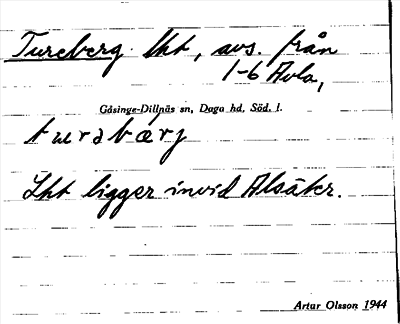 Tureberg lht, avs. från
1-6 Avla,
Gåsinge-Dillnäs sn, Daga hd, Söd. l.
turəbærj
Lht ligger invid Alsäkr.
Artur Olsson 1944